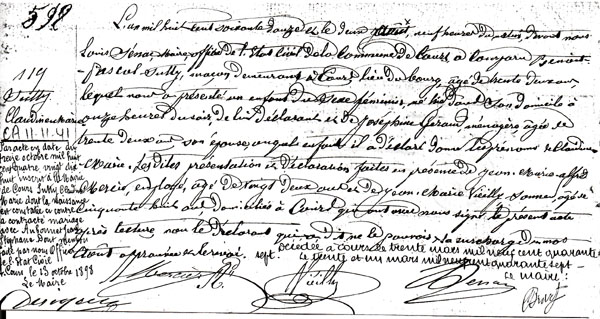 598
L'an mil huit cent soixante douze et le deux neuf heures du devant nous
Louis maire officier de l'Etat Civil de la Commune de Cours a comparu Benoit
Pascal Sutty, maçon demeurant à Cours lieu du bourg âgé de trente deux ans
lequel nous a présenté un enfant du sexe féminin, né dans son domicile à
onze heures du soir de lui Déclarant et de Joséphine Giraud ménagère âgée de
trente deux ans son épouse, auquel enfant il a déclaré donner les prénoms de Claudine
Marie. Les dites présentation et Déclaration faites en présence de Jean Marie Alfred
Mercier, employé, âgé de vingt deux ans et de Jean Marie Vieilly âgé de
cinquante huit ans domiciliés à Cours qui ont avec nous signé le présent acte
après lecture non le Déclarant qui a dit ne le pouvoir
119
Sutty
Claudine Marie
CA 11-11-41
Par acte en date du
treize octobre mil huit
cent quatre vingt dix
huit inscrit à la Mairie
de Cours Sutty Claudine
Marie dont la naissance
est constatée ci contre
a contracté mariage
avec
dont mention
faite par nous Officier
de l'Etat Civil
Cours, le 13 octobre 1898
Le Maire
décédée à Cours le trente mars mil neuf cent quarante
sept. le trente et un mars mil neuf cent quarante sept
le maire:
Vieilly